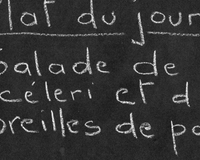 plat du jour
Salade de
céleri et d
oreilles de po